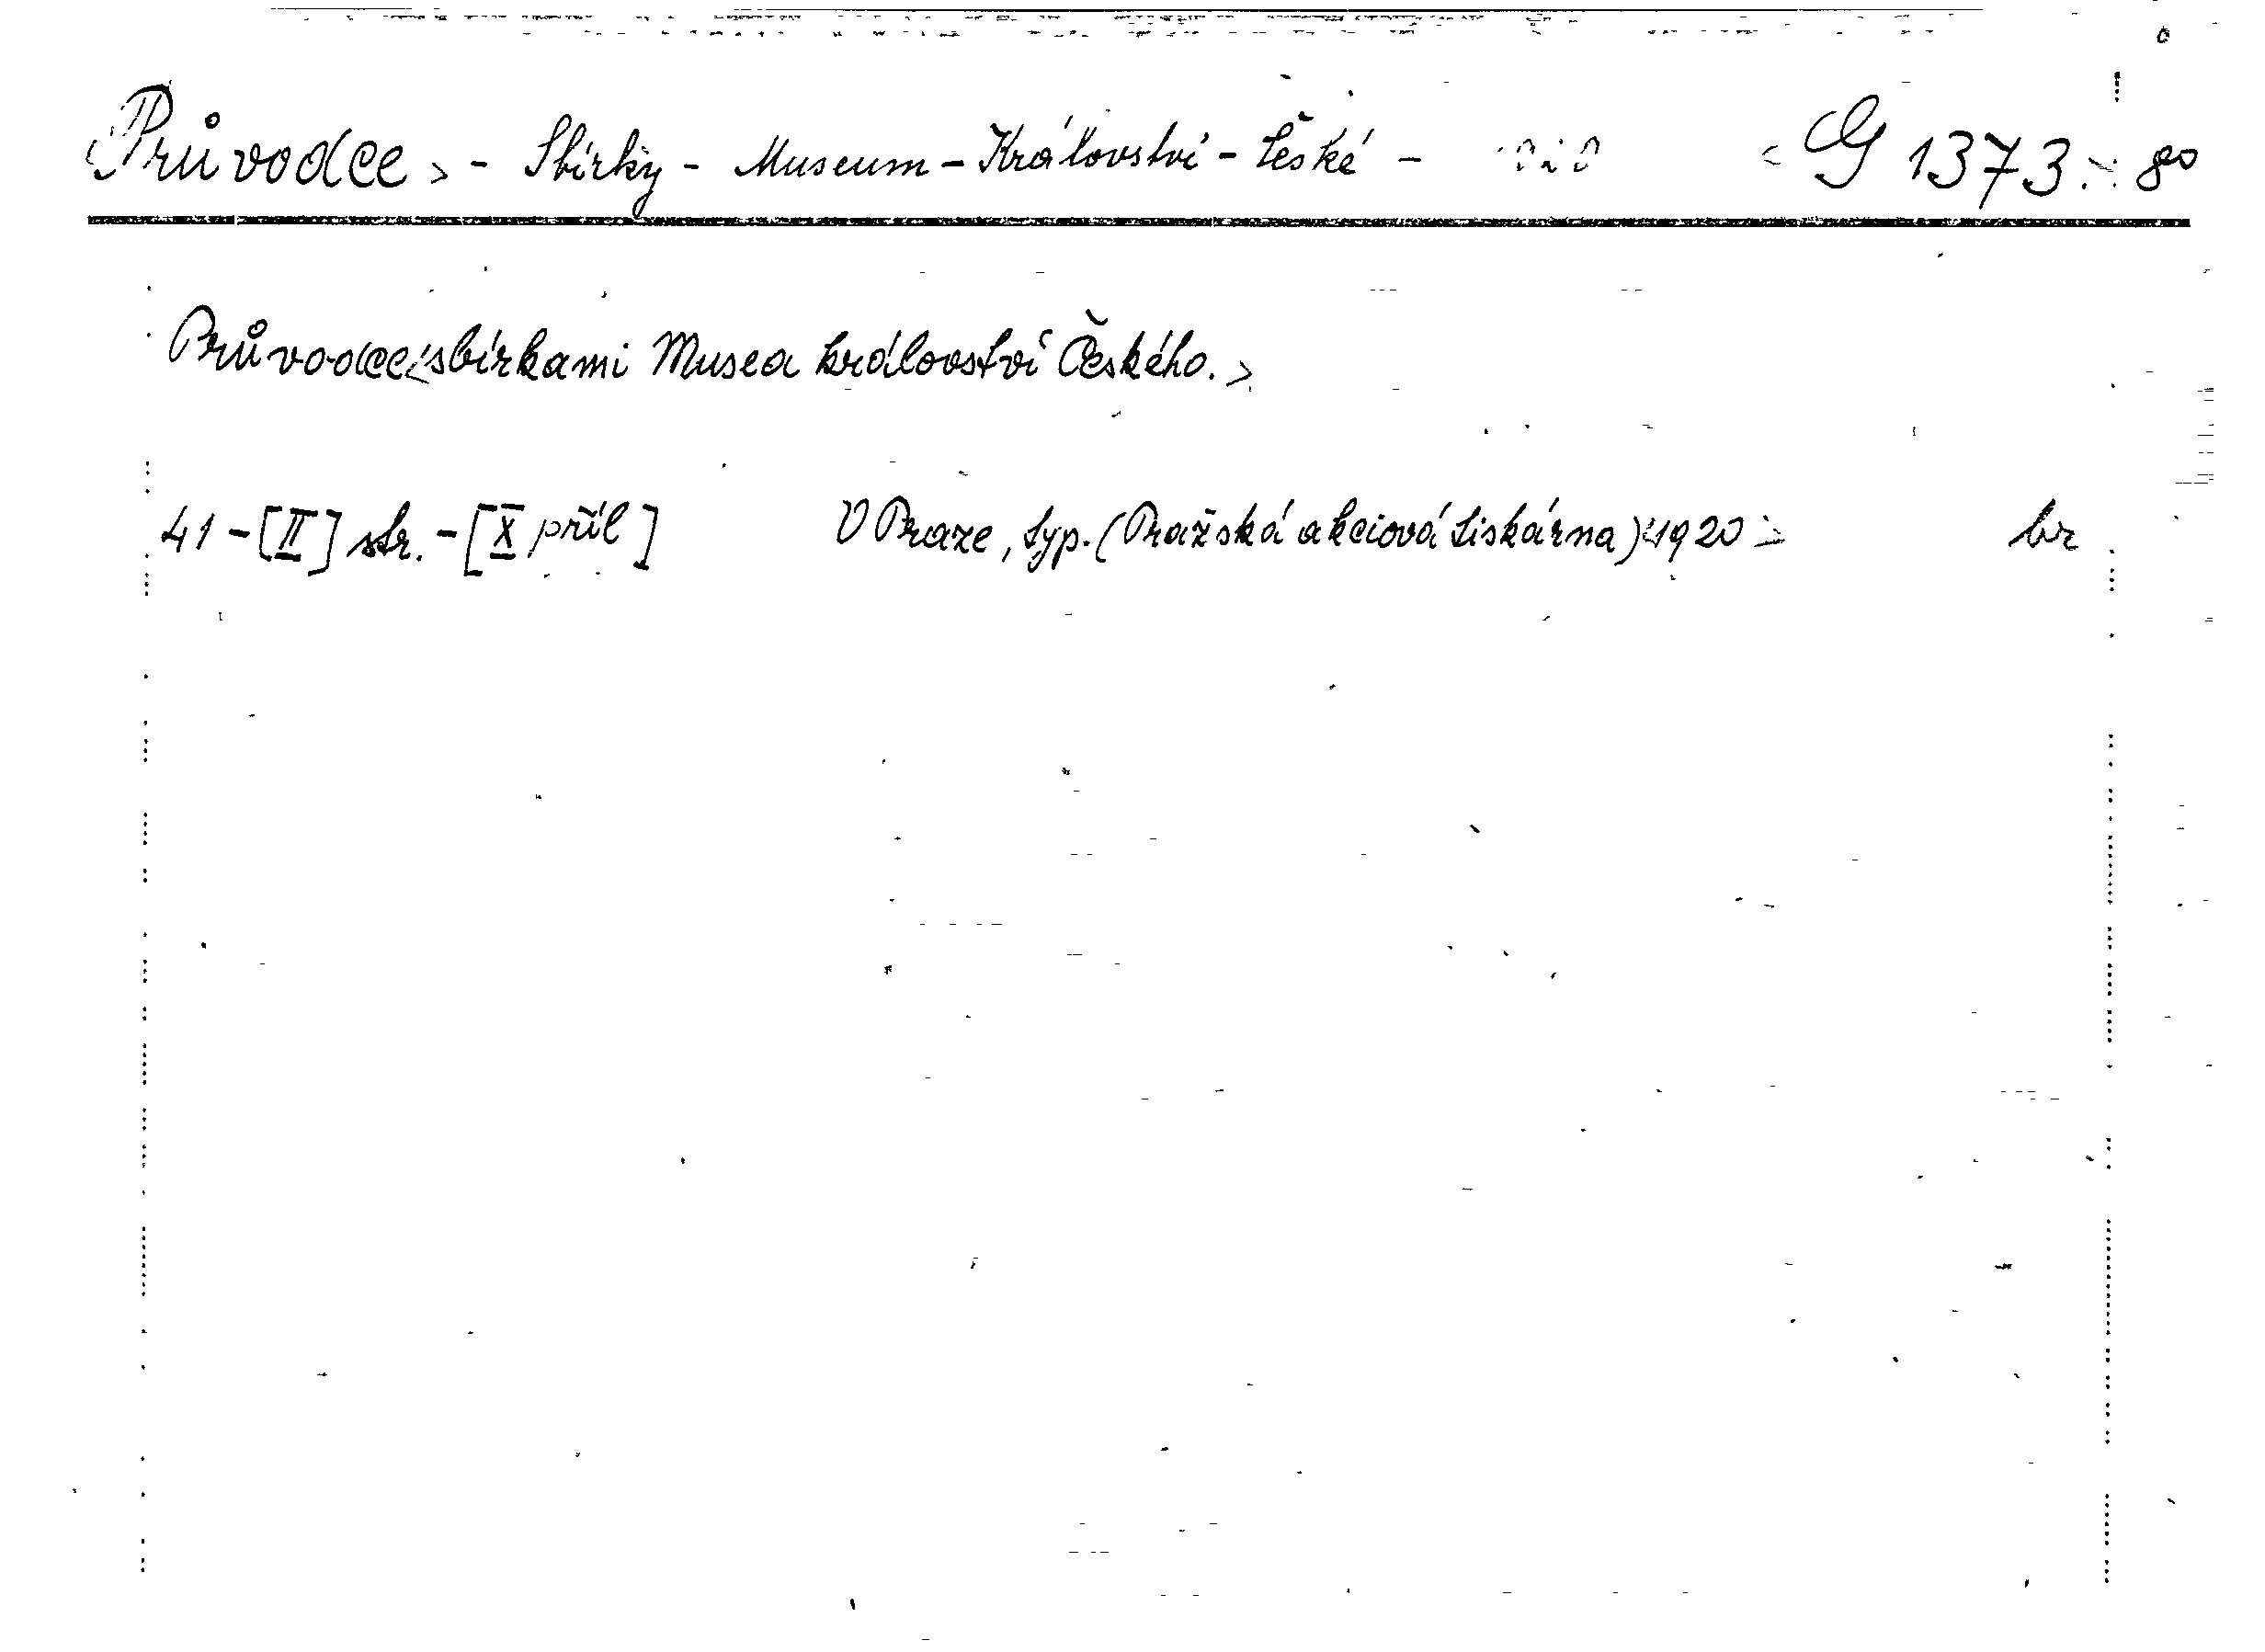 Průvodce - Sbírky - Museum - Království - České - G 1373 8°
Průvodce sbírkami Musea království Českého.
41 - [II] str. - [X příl] V Praze, typ. (Pražská akciová tiskárna) 1920 br